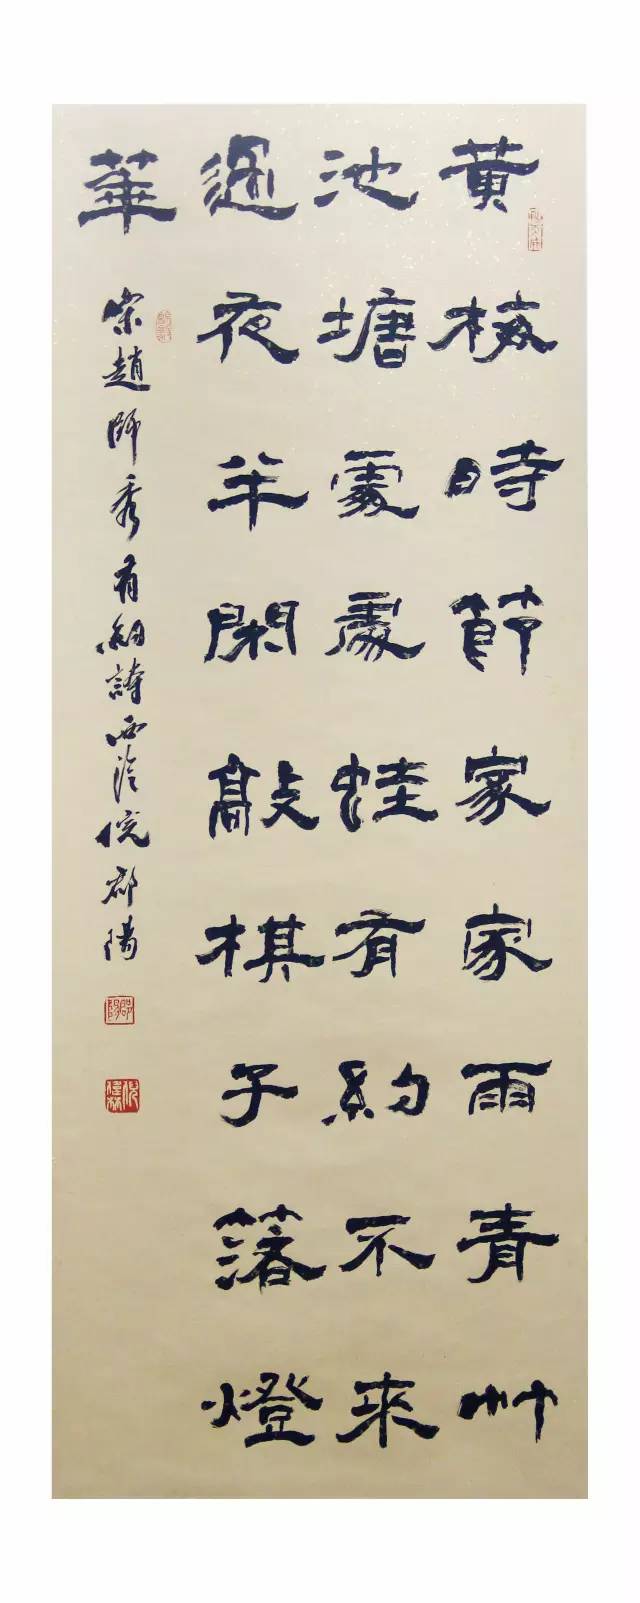 黄梅時節家家雨青艸
池塘處處蛙有約不來
過夜半閑敲棋子落燈
華
宋趙師秀有約詩西倪郡陽